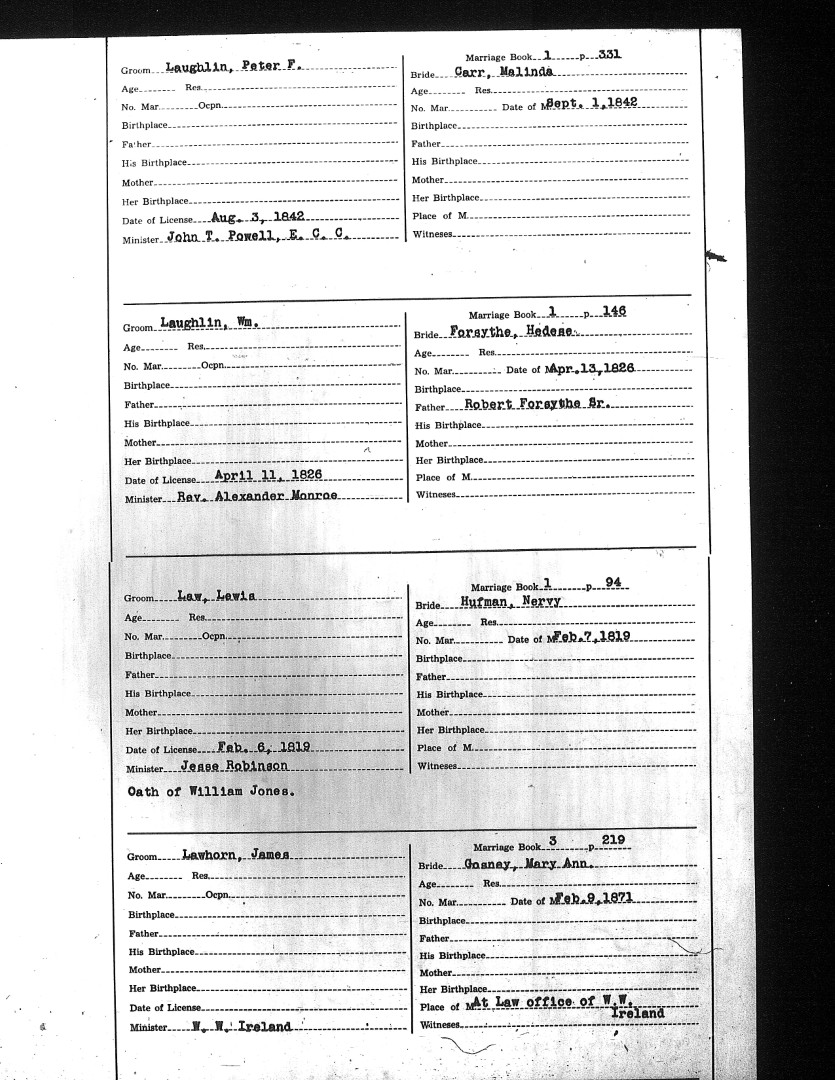 Groom Laughlin, Peter F.
Age Res.
No. Mar. Ocpn.
Birthplace
Father
His Birthplace
Mother
Her Birthplace
Date of License Aug. 3, 1842
Minister John T. Powell, E. C. C.
Marriage Book 1 p. 331
Bride Carr, Malinda
Age Res.
No. Mar. Date of M Sept. 1, 1842
Birthplace
Father
His Birthplace
Mother
Her Birthplace
Place of M.
Witnesses
Groom Laughlin, Wm.
Age Res.
No. Mar. Ocpn.
Birthplace
Father
His Birthplace
Mother
Her Birthplace
Date of License April 11, 1826
Minister Rev. Alexander Monroe
Marriage Book 1 p. 146
Bride Forsythe, Hedese.
Age Res.
No. Mar. Date of M Apr. 13, 1826
Birthplace
Father Robert Forsythe Sr.
His Birthplace
Mother
Her Birthplace
Place of M.
Witnesses
Groom Law, Lewis
Age Res.
No. Mar. Ocpn.
Birthplace
Father
His Birthplace
Mother
Her Birthplace
Date of License Feb. 6, 1819
Minister Jesse Robinson
Oath of William Jones.
Marriage Book 1 p. 94
Bride Hufman, Nervy
Age Res.
No. Mar. Date of M Feb. 7, 1819
Birthplace
Father
His Birthplace
Mother
Her Birthplace
Place of M.
Witnesses
Groom Lawhorn, James
Age Res.
No. Mar. Ocpn.
Birthplace
Father
His Birthplace
Mother
Her Birthplace
Date of License
Minister W. W. Ireland
Marriage Book 3 p. 219
Bride Gosney, Mary Ann.
Age Res.
No. Mar. Date of M Feb. 9, 1871
Birthplace
Father
His Birthplace
Mother
Her Birthplace
Place of M At Law office of W.W.
Ireland
Witnesses